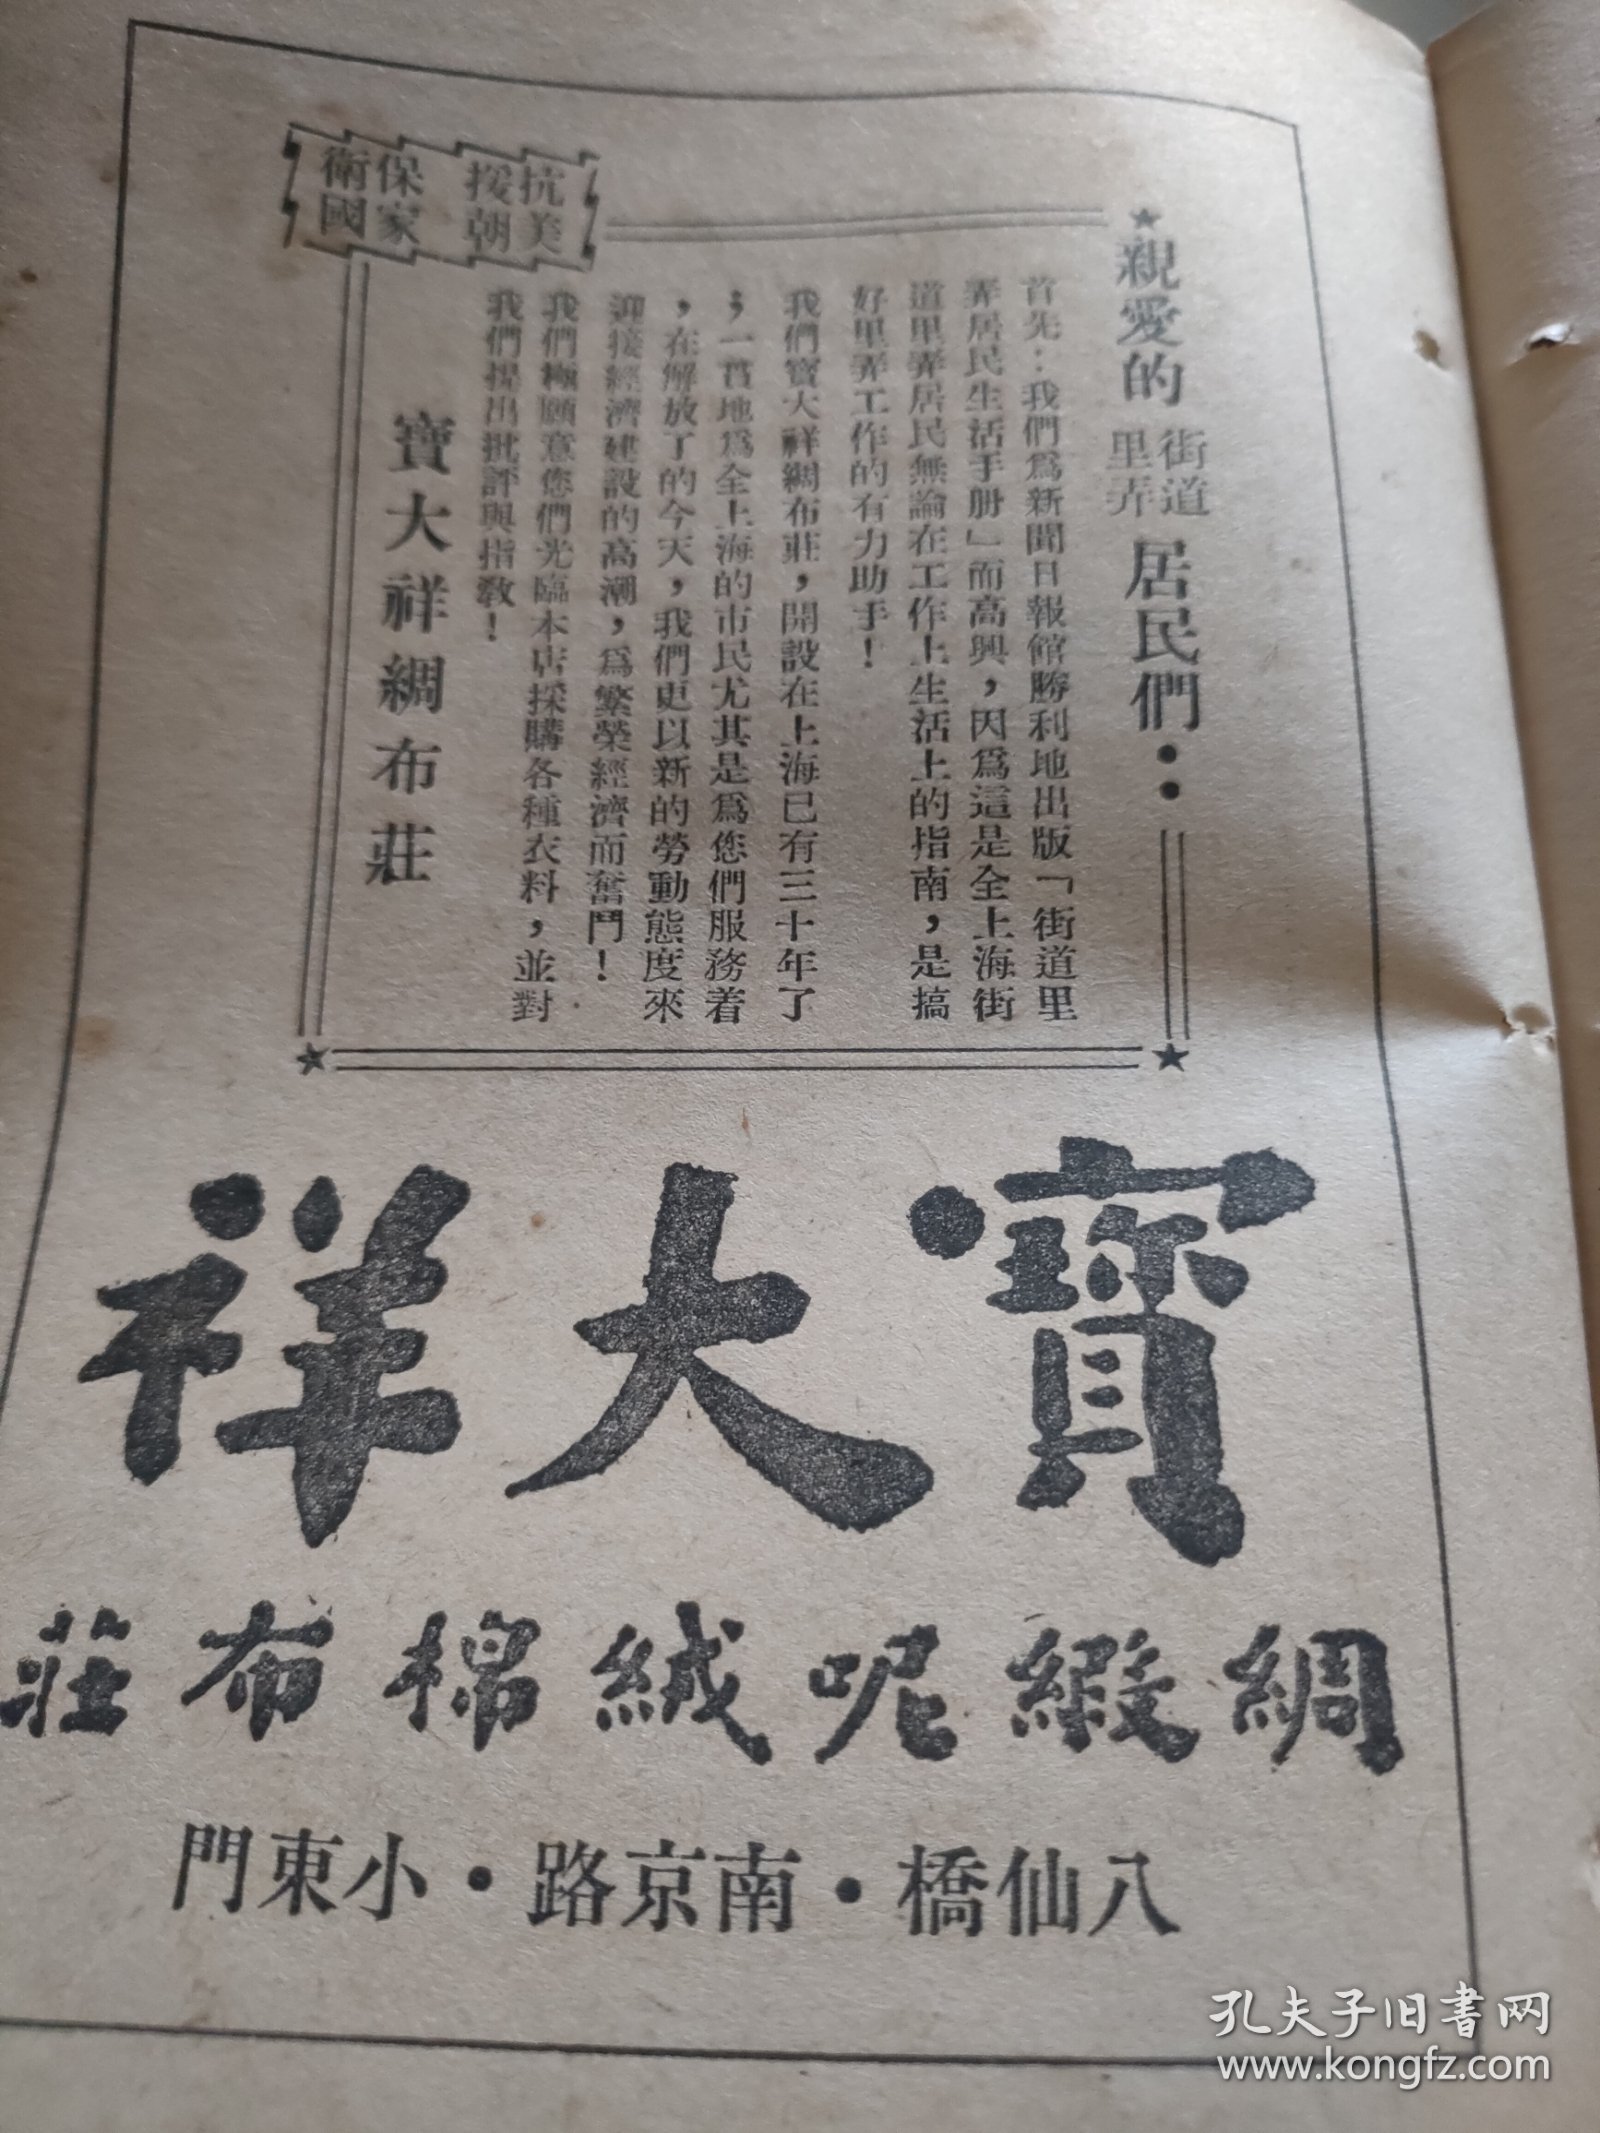 親愛的街道里弄居民們：
首先：我們爲新聞日報館勝利地出版「街道里
弄居民生活手册」而高興，因爲這是全上海街
道里弄居民無論在工作上生活上的指南，是搞
好里弄工作的有力助手！
我們寶大祥綢布莊，開設在上海已有三十年了
；一貫地爲全上海的市民尤其是爲您們服務着
，在解放了的今天，我們更以新的勞動態度來
迎接經濟建設的高潮，爲繁榮經濟而奮鬥！
我們極願意您們光臨本店採購各種衣料，並對
我們提出批評與指教！
寶大祥綢布莊
抗美
援朝
保家
衛國
寶大祥
綢緞呢絨棉布莊
八仙橋・南京路・小東門
孔夫子旧書网
www.kongfz.com